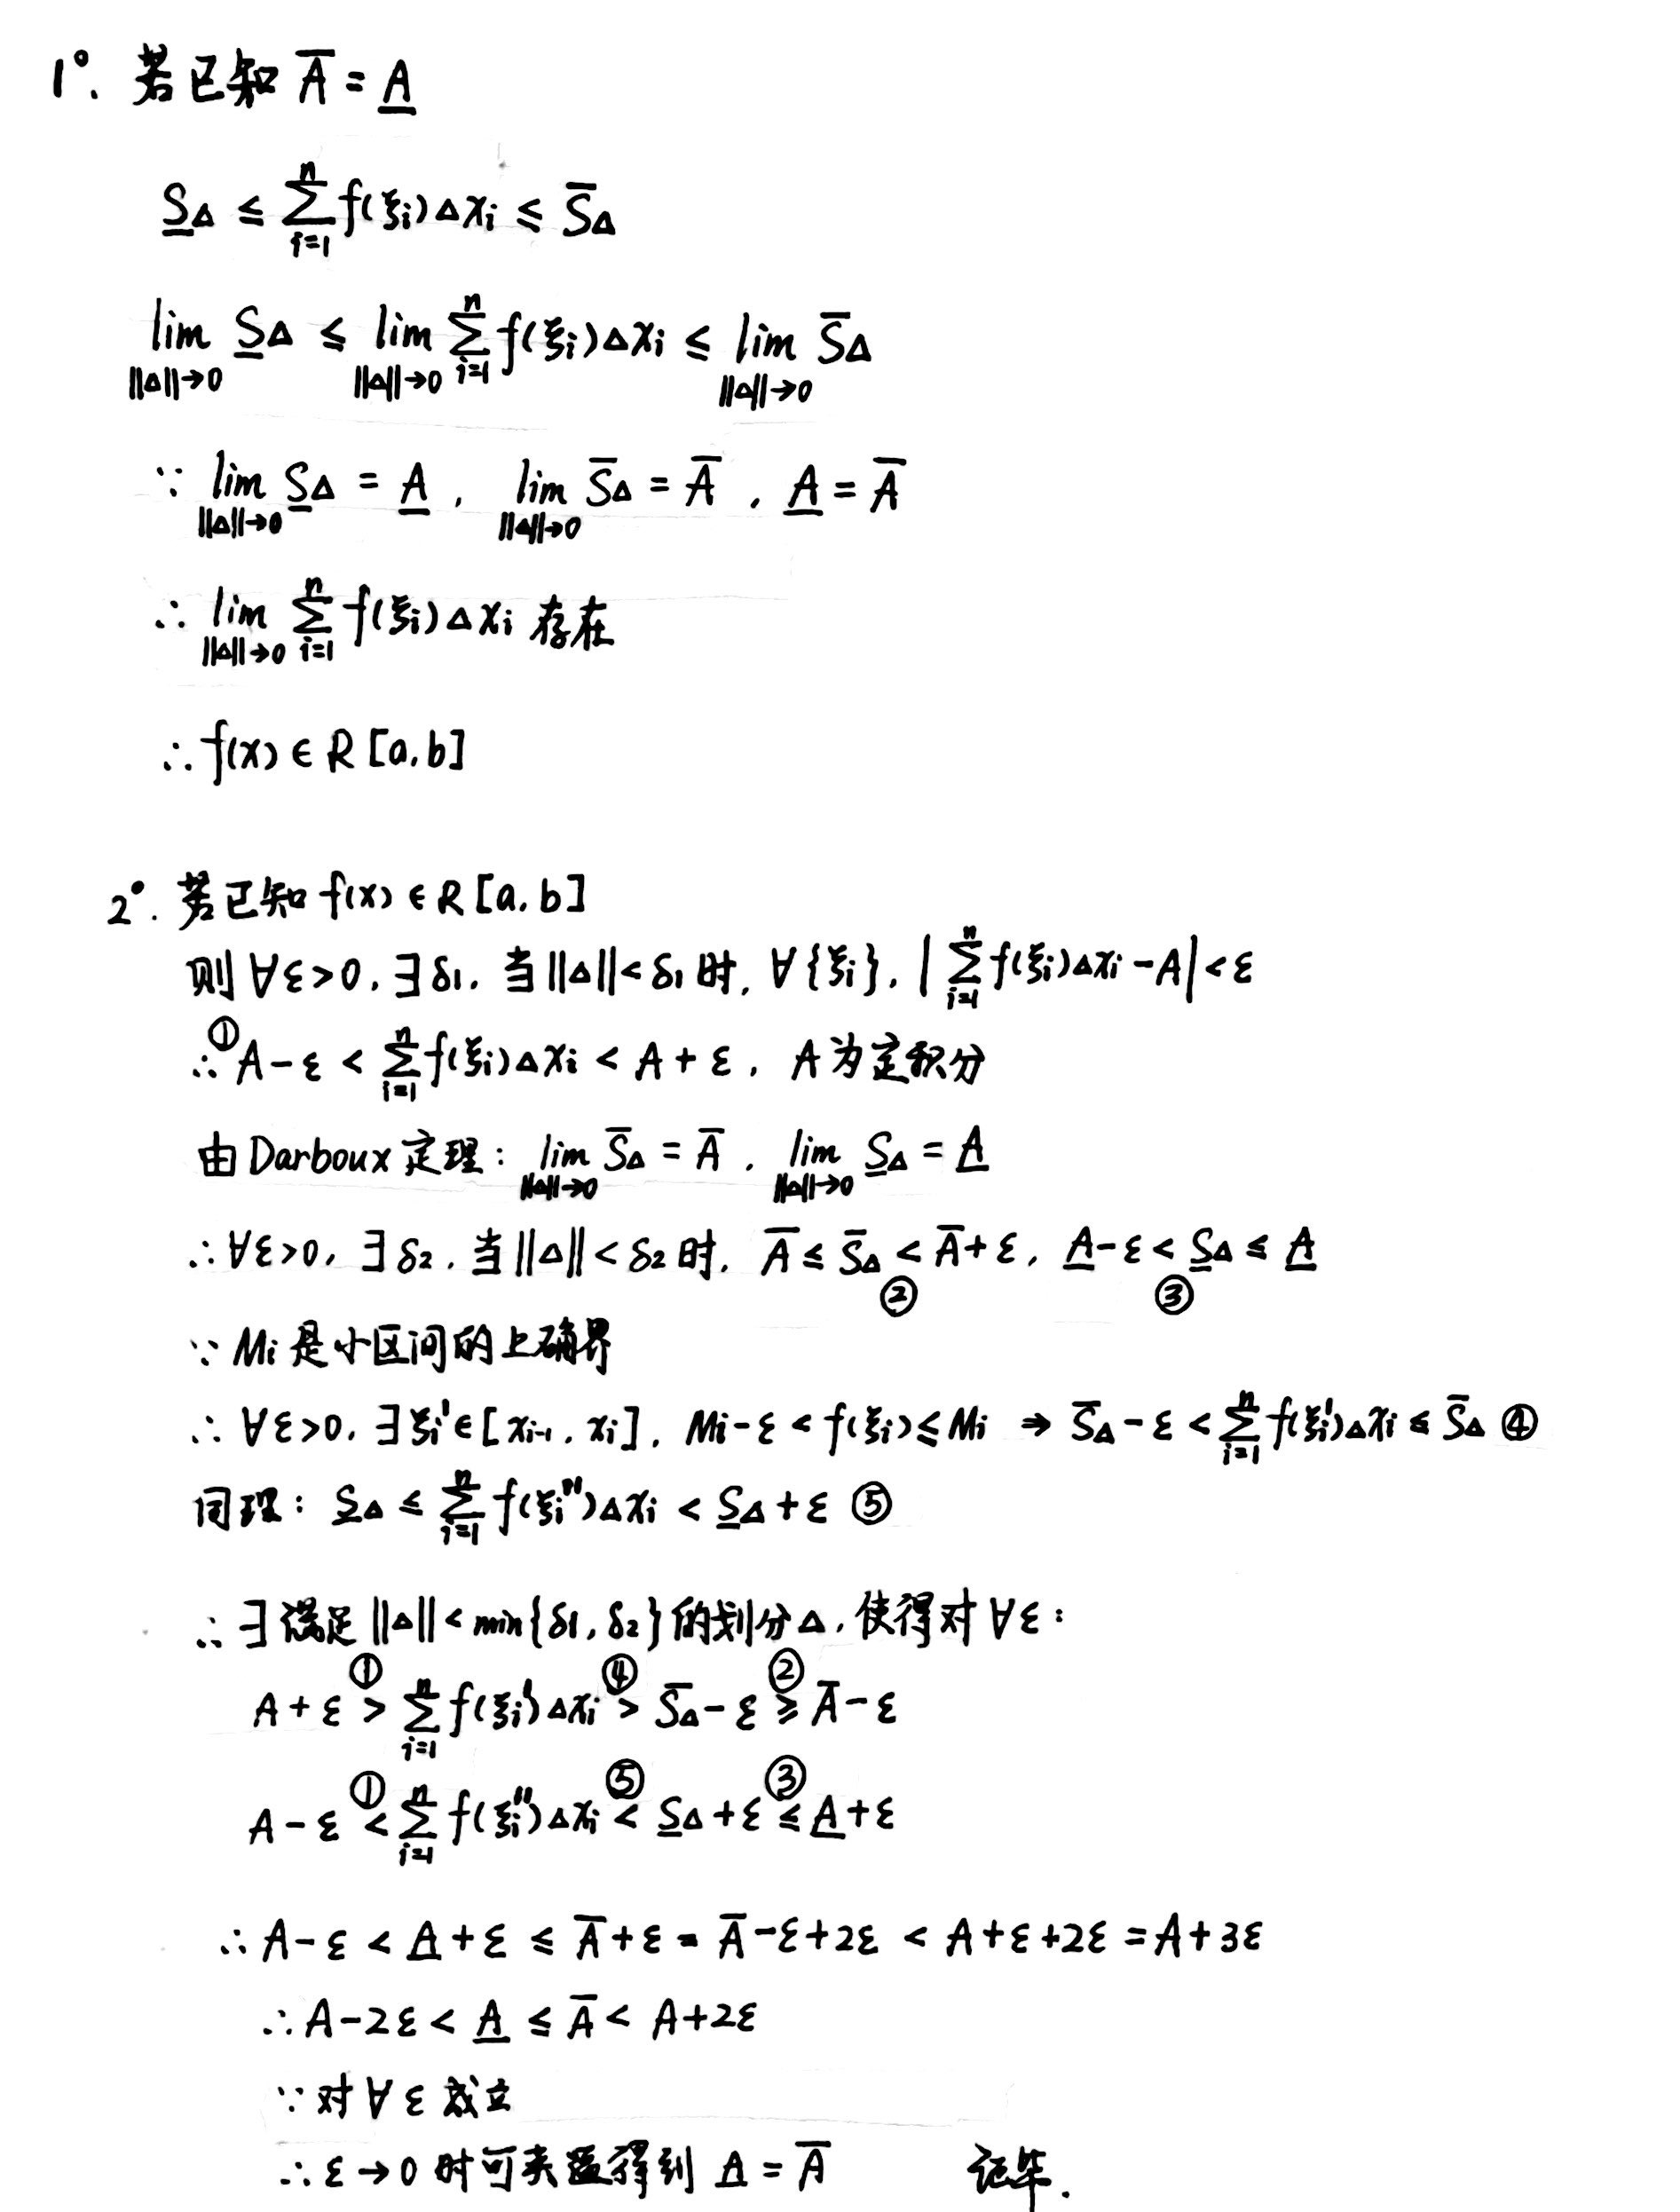 1°. 若已知 A̅ = A̲
S̲Δ ≤ Σ_{i=1}^{n} f(ξi)Δxi ≤ S̅Δ
lim_{‖Δ‖→0} S̲Δ ≤ lim_{‖Δ‖→0} Σ_{i=1}^{n} f(ξi)Δxi ≤ lim_{‖Δ‖→0} S̅Δ
∵ lim_{‖Δ‖→0} S̲Δ = A̲ , lim_{‖Δ‖→0} S̅Δ = A̅ , A̲ = A̅
∴ lim_{‖Δ‖→0} Σ_{i=1}^{n} f(ξi)Δxi 存在
∴ f(x) ∈ R [a,b]
2°. 若已知 f(x) ∈ R [a,b]
则 ∀ε>0, ∃δ1, 当‖Δ‖<δ1时, ∀{ξi}, |Σ_{i=1}^{n} f(ξi)Δxi - A| < ε
∴ ① A-ε < Σ_{i=1}^{n} f(ξi)Δxi < A+ε, A为定积分
由Darboux定理: lim_{‖Δ‖→0} S̅Δ = A̅ , lim_{‖Δ‖→0} S̲Δ = A̲
∴ ∀ε>0, ∃δ2, 当‖Δ‖<δ2时, A̅ ≤ S̅Δ < A̅+ε, A̲-ε < S̲Δ ≤ A̲
② ③
∵ Mi是小区间的上确界
∴ ∀ε>0, ∃ξi'∈[xi-1, xi], Mi-ε < f(ξi) ≤ Mi ⇒ S̅Δ-ε < Σ_{i=1}^{n} f(ξi')Δxi ≤ S̅Δ ④
同理: S̲Δ ≤ Σ_{i=1}^{n} f(ξi'')Δxi < S̲Δ+ε ⑤
∴ ∃满足‖Δ‖<min{δ1,δ2}的划分Δ, 使得对∀ε:
① ④ ②
A+ε > Σ_{i=1}^{n} f(ξi')Δxi > S̅Δ-ε ≥ A̅-ε
① ⑤ ③
A-ε < Σ_{i=1}^{n} f(ξi'')Δxi < S̲Δ+ε ≤ A̲+ε
∴ A-ε < A̲+ε ≤ A̅+ε = A̅-ε+2ε < A+ε+2ε = A+3ε
∴ A-2ε < A̲ ≤ A̅ < A+2ε
∵ 对∀ε成立
∴ ε→0时可夹逼得到 A̲ = A̅ 证毕.